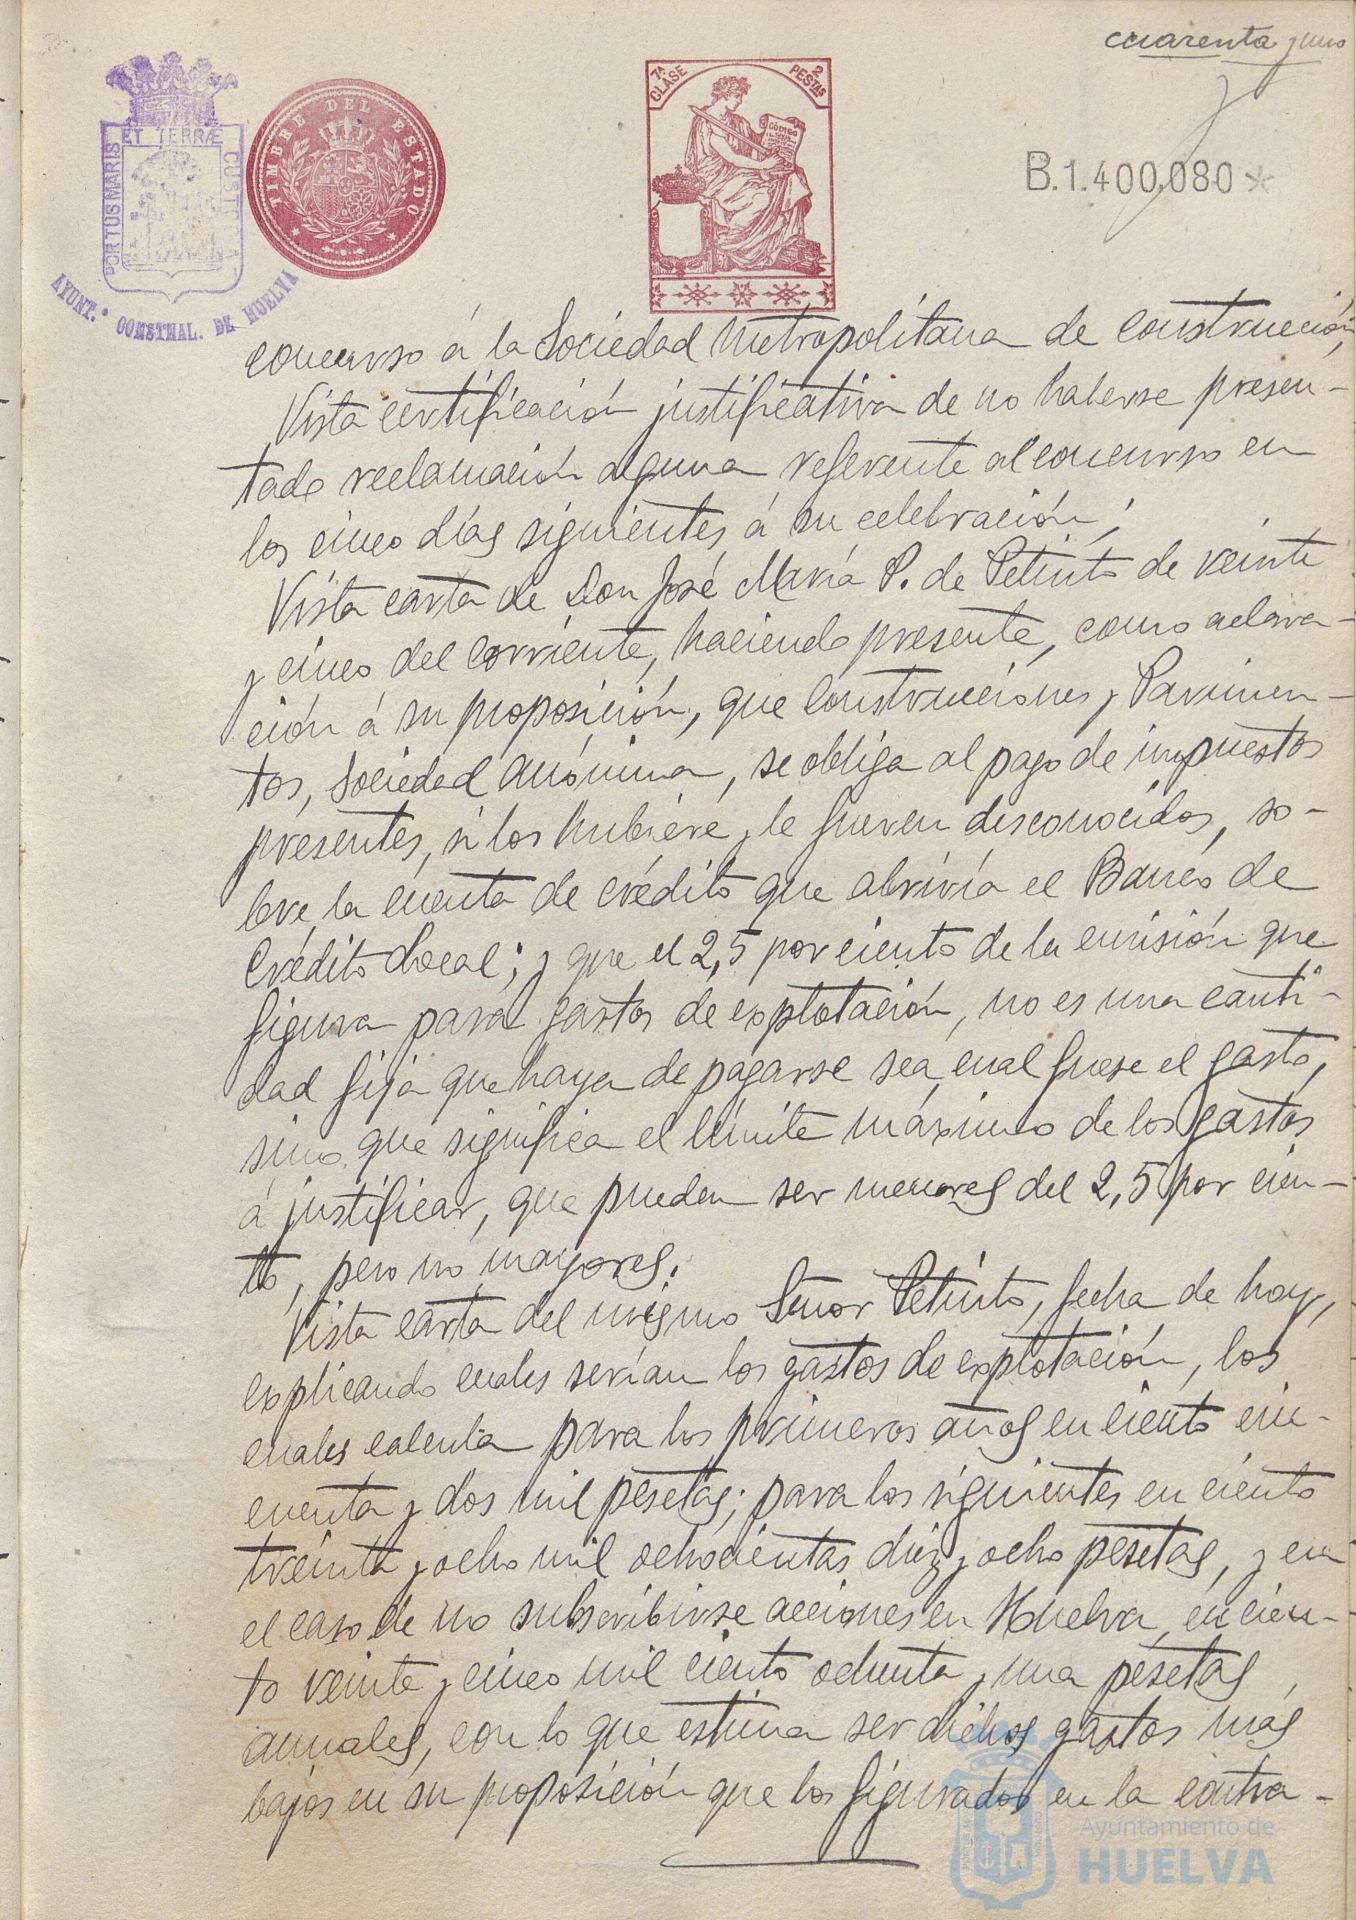 cuarenta y uno
ET TERRÆ
PORTUS MARIS
CUSTODIA
AYUNT.º CONSTNAL. DE HUELVA
TIMBRE DEL ESTADO
7ª CLASE
2 PESTAS
CÓDIGO
B.1.400,080*
concurso á la Sociedad Metropolitana de Construcción,
Vista certificación justificativa de no haberse presen-
tado reclamación alguna referente al concurso en
los cinco días siguientes á su celebración;
Vista carta de Don José María P. de Petinto de veinte
y cinco del corriente, haciendo presente, como aclara-
ción á su proposición, que Construcciones y Pavimen-
tos, Sociedad Anónima, se obliga al pago de impuestos
presentes, si los hubiere y le fueren desconocidos, so-
bre la cuenta de crédito que abriría el Banco de
Crédito Local; y que el 2,5 por ciento de la emisión que
figura para gastos de explotación, no es una canti-
dad fija que haya de pagarse sea cual fuese el gasto,
sino que significa el límite máximo de los gastos
á justificar, que pueden ser menores del 2,5 por cien-
to, pero no mayores.
Vista carta del mismo Señor Petinto, fecha de hoy,
explicando cuales serían los gastos de explotación, los
cuales calcula para los primeros años en ciento cin-
cuenta y dos mil pesetas; para los siguientes en ciento
treinta y ocho mil ochocientas diez y ocho pesetas, y en
el caso de no subscribirse acciones en Huelva, en cien-
to veinte y cinco mil ciento ochenta y una pesetas,
anuales, con lo que estima ser dichos gastos más
bajos en su proposición que los figurados en la contra-
Ayuntamiento de
HUELVA